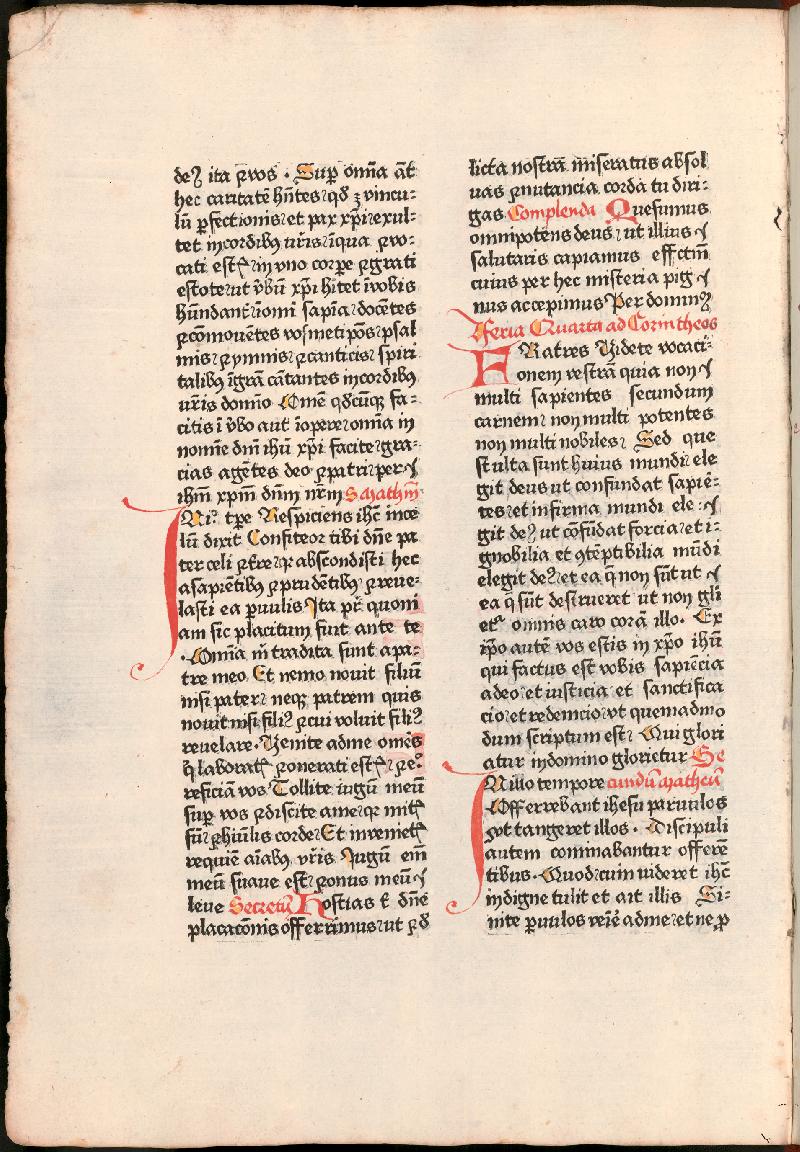 deꝰ ita ⁊ vos . Suꝑ om̄ia aūt
hec caritatē hn̄tes qd̄ ē vincu-
lū ꝑfectionis et pax xp̄i exul-
tet in cordibꝰ vr̄is in qua ⁊ vo-
cati estis in vno corpe ⁊ grati
estote vt v̄bū xp̄i hītet ī vobis
hūndant̄ ī omī sapīa docētes
⁊ cōmouētes vosmetip̄os psal
mis ⁊ ymnis ⁊ canticis spiri
talibꝰ ī grā cātantes in cordibꝰ
vr̄is domīo Omē qd̄cūqꝫ fa-
citis ī v̄bo aut ī opere om̄ia in
nomīe dn̄i ih̄u xp̄i facite gra-
cias agētes deo ⁊ patri per
ih̄m xp̄m dn̄m nr̄m S Math̄m
IN i° tꝑe Respiciens ih̄c in ce
lū dixit Confiteor tibi dn̄e pa
ter celi ⁊ tr̄e qꝛ abscondisti hec
a sapiētibꝰ ⁊ prudētibꝰ ⁊ reue-
lasti ea ꝑuulis Ita pr̄ quoni
am sic placitum fuit ante te
. Om̄ia m̄ tradita sunt a pa-
tre meo Et nemo nouit filiū
nisi pater neqꝫ patrem quis
nouit nisi filiꝰ ⁊ cui voluit filiꝰ
reuelare . Venite ad me om̄es
q̄ laboratꝭ ⁊ onerati estꝭ ⁊ e°
reficiā vos Tollite iugū meū
suꝑ vos ⁊ discite a me qꝛ mitꝭ
sū ⁊ hūilis corde Et inuenietꝭ
requiē aīabꝰ vr̄is Jugū em̄
meū suaue est ⁊ onus meū
leue Secretū Hostias t̄ dn̄e
placacōnis offerrimus ut ⁊ d̄
licta nostrā miseratus absol
uas ⁊ nutancia corda tu diri-
gas Complenda Quesumus
omnipotens deus ut illius
salutaris capiamus effc̄tm̄
cuius per hec misteria pig
nus accepimus Per dominꝫ
Feria Quarta ad Corintheos
FRatres Videte vocaci-
onem vestrā quia non
multi sapientes secundum
carnem non multi potentes
non multi nobiles Sed que
stulta sunt huius mundi ele
git deus ut confundat sapiē-
tes et infirma mundi ele-
git deꝰ ut cōfūdat forcia et i-
gnobilia et ꝯtēptibilia mūdi
elegit deꝰ et ea q̄ non sūt ut
ea q̄ sūt destrueret ut non gl̄i
et° omnis caro corā illo . Ex
ip̄o autē vos estis in xp̄o ih̄u
qui factus est vobis sapiēcia
a deo et iusticia et sanctifica
cio et redemcio vt quemadmo
dum scriptum est Qui glori
atur in domino glorietur Se
IN illo tempore cundū Matheū
Offerrebant ihesu paruulos
vt tangeret illos . Discipuli
autem cominabantur offerē
tibus . Quod cum uideret ih̄c
indigne tulit et ait illis Si-
nite ꝑuulos veīē ad me et ne ꝓ